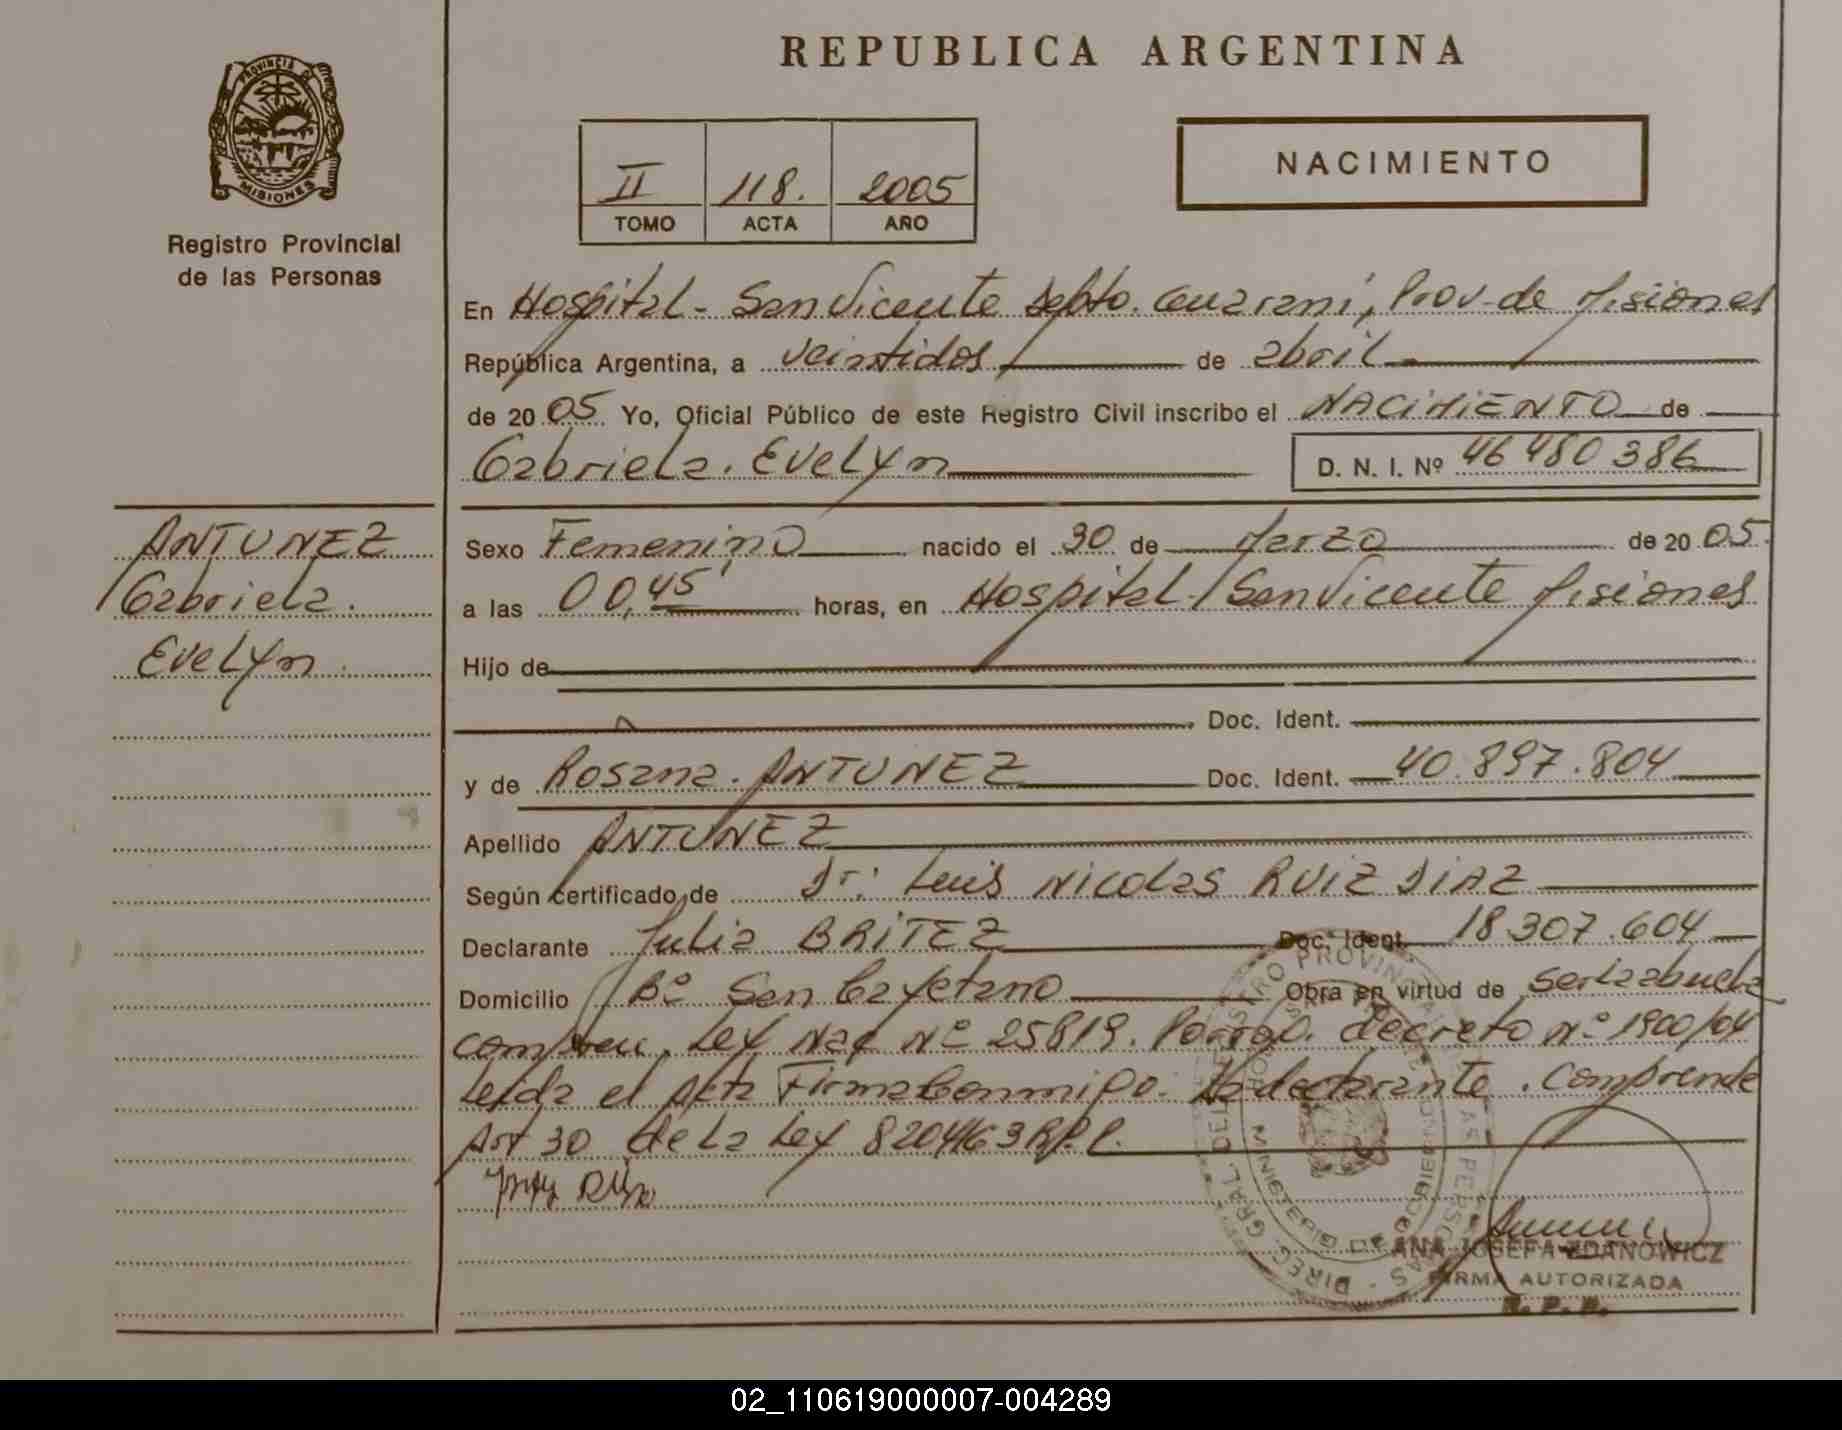 REPUBLICA ARGENTINA
PROVINCIA DE
MISIONES
Registro Provincial
de las Personas
II 118. 2005
TOMO ACTA AÑO
NACIMIENTO
En Hospital - San Vicente Depto. Guarani, Prov. de Misiones
República Argentina, a veintidos de abril
de 2005 Yo, Oficial Público de este Registro Civil inscribo el NACIMIENTO de
Gabriela. Evelyn D. N. I. Nº 46 480 386
ANTUNEZ
Gabriela.
Evelyn.
Sexo Femenino nacido el 30 de Marzo de 2005.
a las 00,45 horas, en Hospital San Vicente Misiones
Hijo de
Doc. Ident.
y de Rosana. ANTUNEZ Doc. Ident. 40.897.804
Apellido ANTUNEZ
Según certificado de Dr: Luis Nicolas RUIZ DIAZ
Declarante Julia BRITEZ Doc. Ident. 18.307.604
Domicilio Bº San Cayetano Obra en virtud de ser la abuela
Ley Nac Nº 25819. decreto nº 1900/04
Leida el Acta Firma Conmigo. La declarante. Comprende
Art 30 de la Ley 8204/63
ANA JOSEFA ZDANOWICZ
FIRMA AUTORIZADA
R. P. P.
02_110619000007-004289